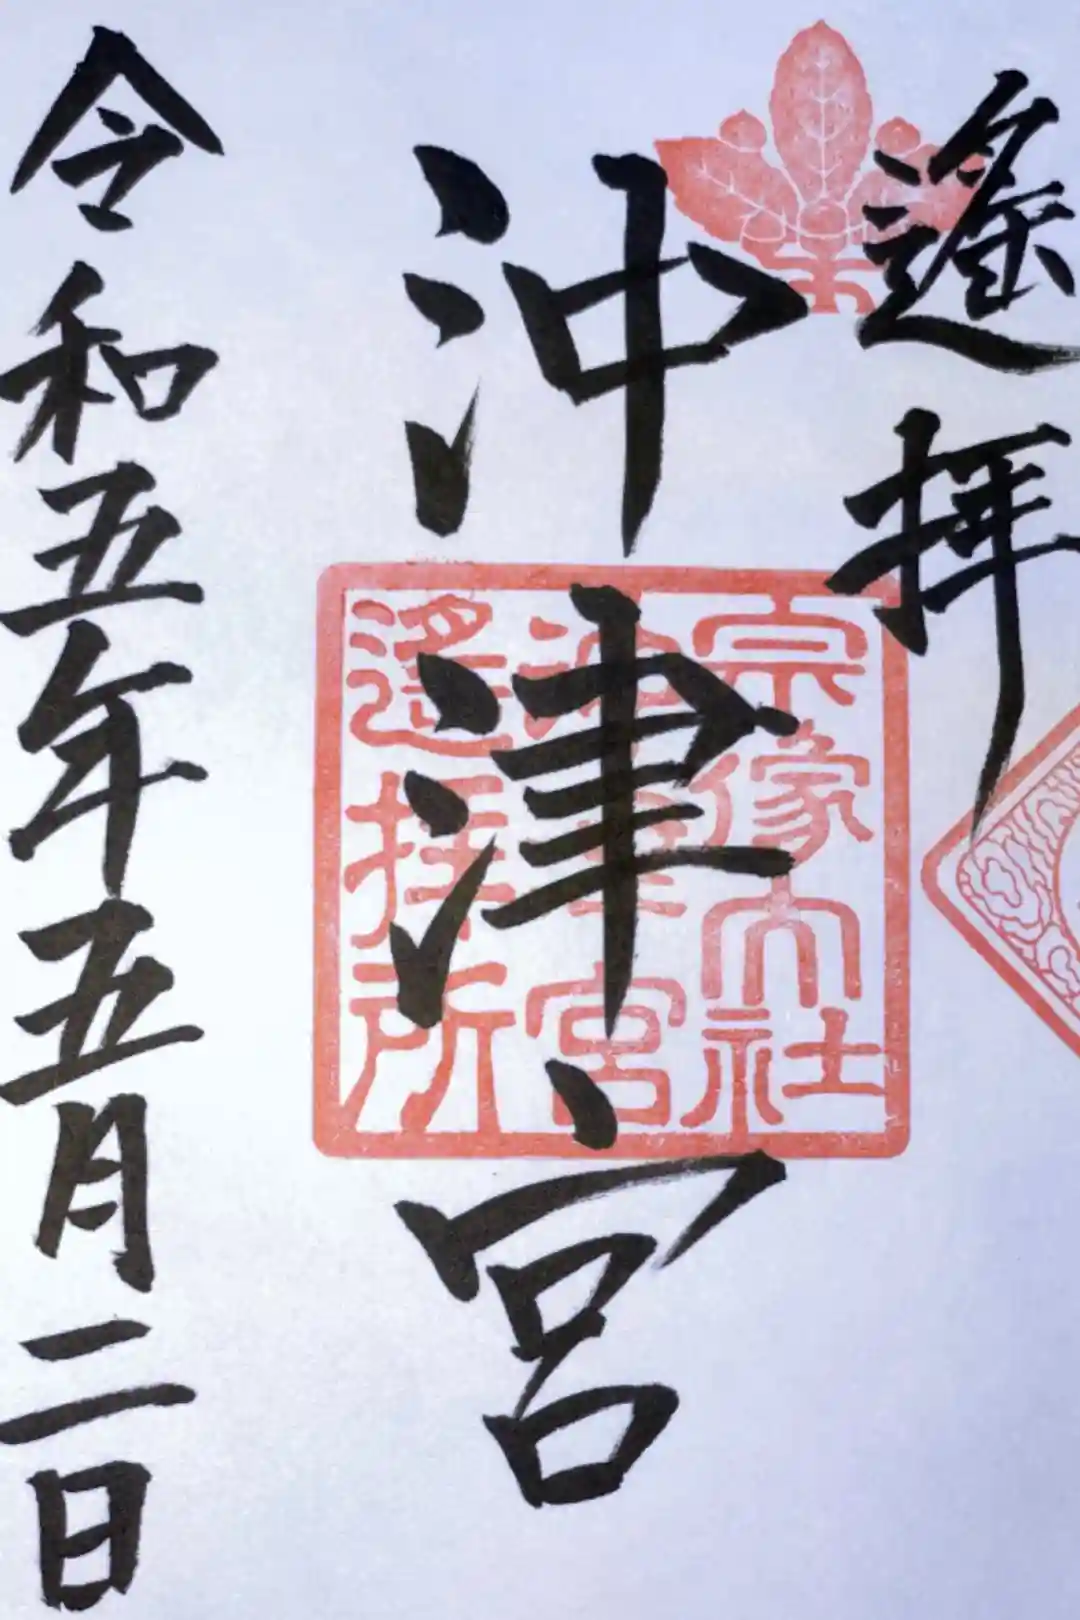 遙拝
沖津宮
令和五年五月二日
宗像大社
沖津宮
遙拝所